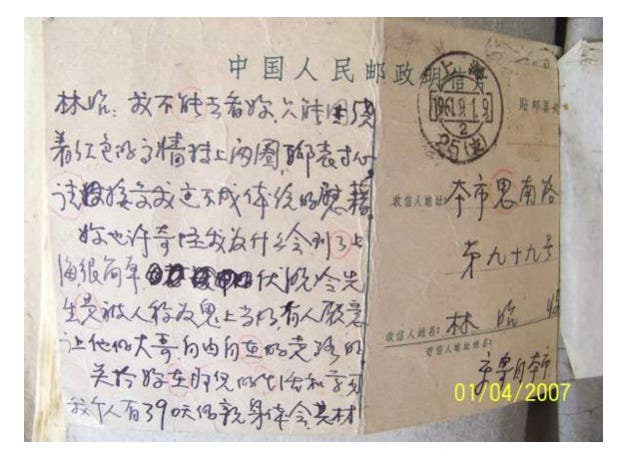 中国人民邮政明信片
林昭：我不能去看妳，只能围绕
着红色的高墙转上两圈，聊表寸心
请接受我这不成体统的慰藉
妳也许奇怪我为什么会到了上
海很简单 伏晓冷先
生是被人称为鬼上当的有人愿意
让他的大哥自由自在的走路的
关於妳在那儿的生活和学习
我个人有390天的亲身体会其材
上海
1961.9.1.9
2
25(支)
贴邮票处
收信人地址：本市思南路
第九十九号
收信人姓名：林昭妳
寄信人地址姓名：
寄自本市
01/04/2007